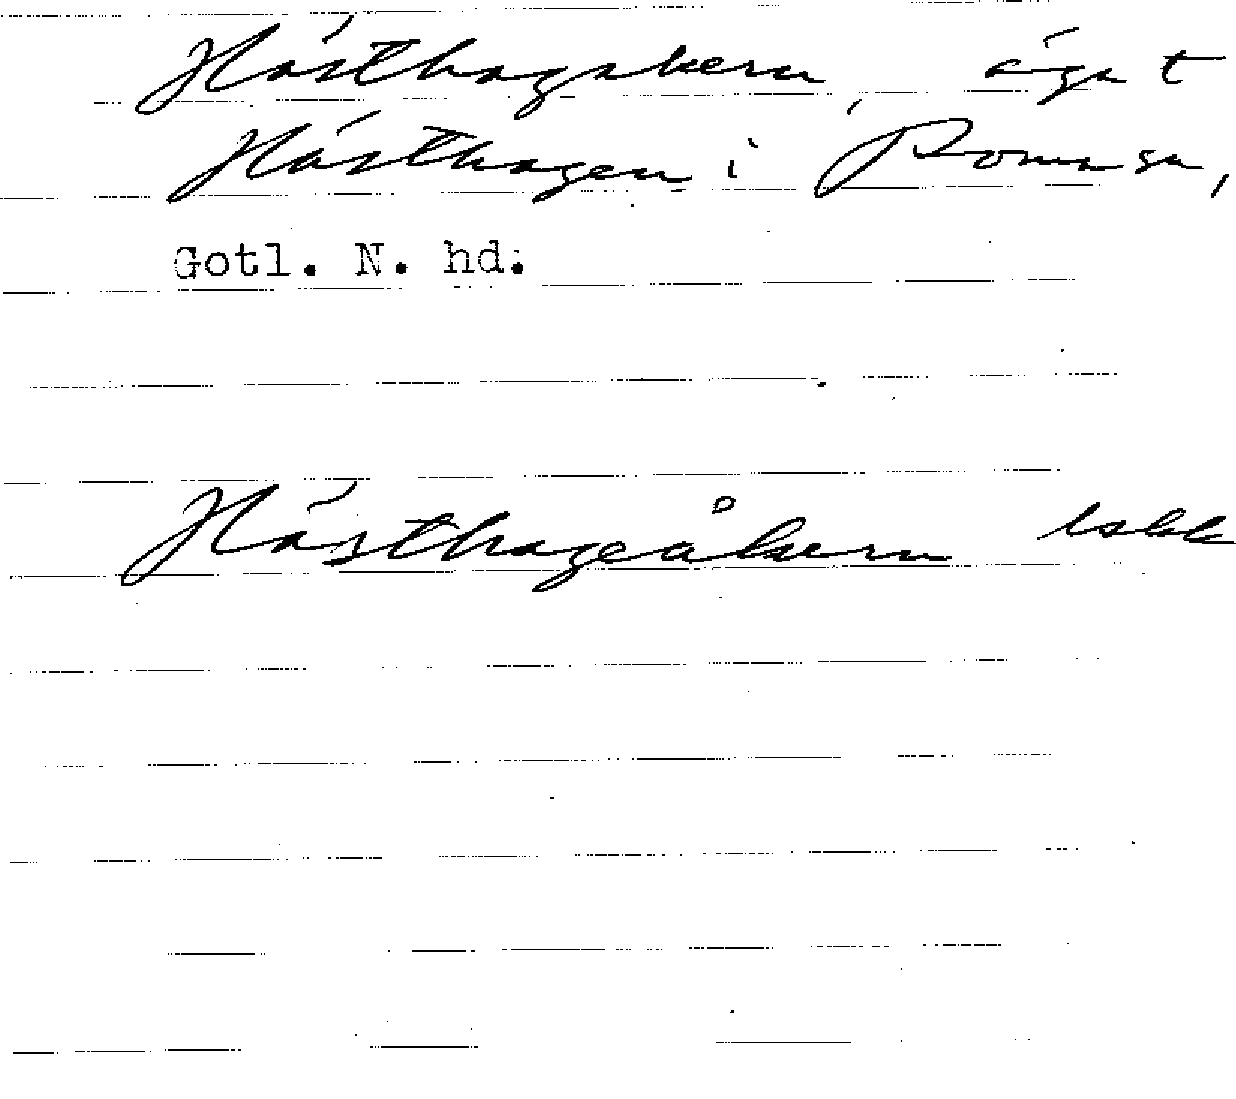 Hästhagakern, äga t
Hästhagen i Roma sn,
Gotl. N. hd.
Hästhageåkern